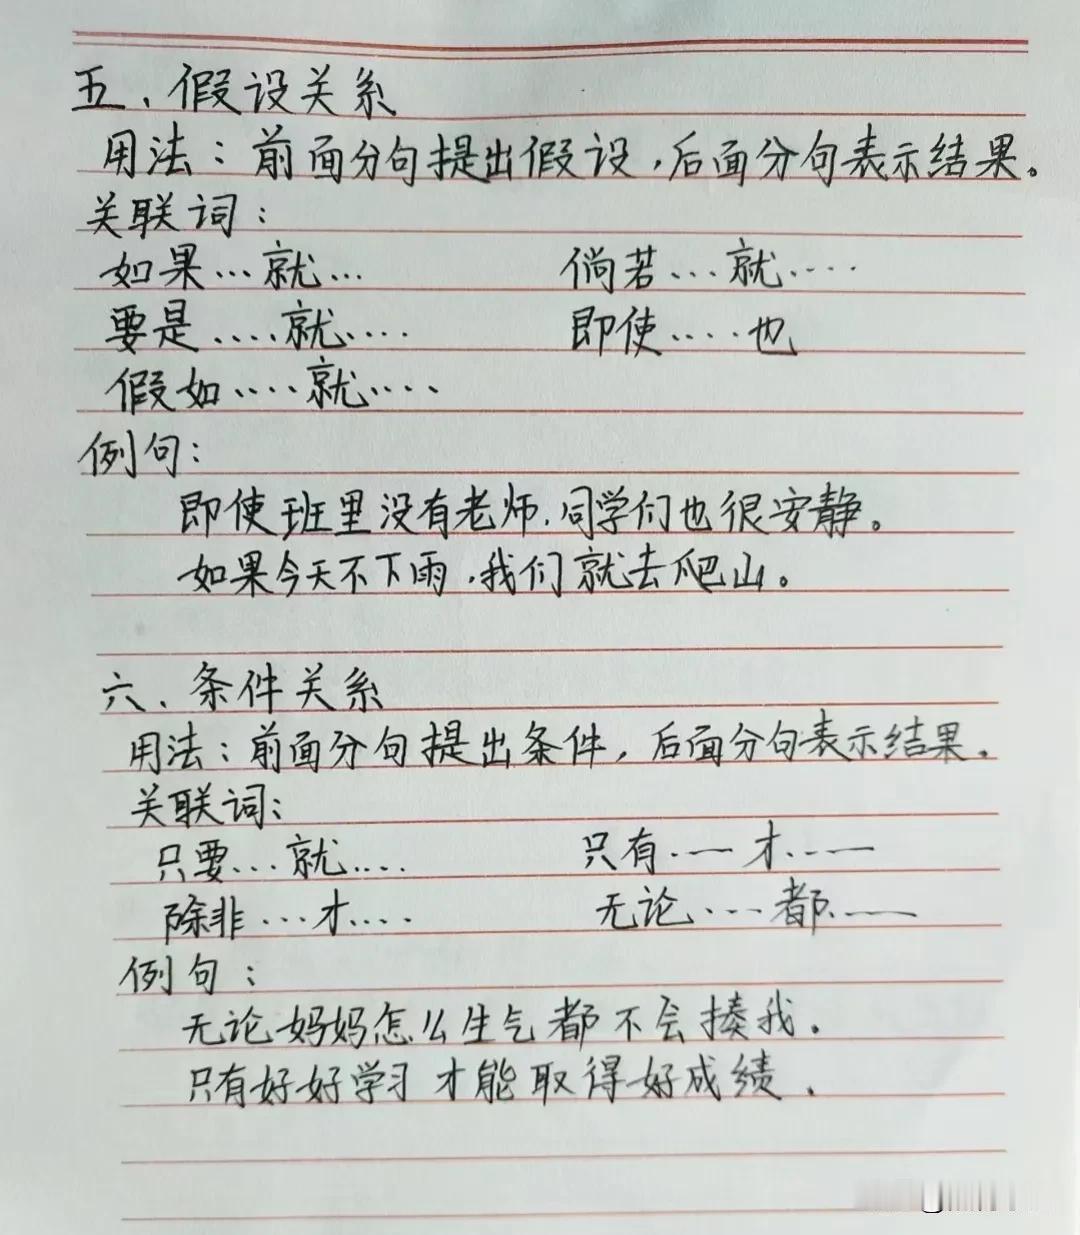 五、假设关系
用法：前面分句提出假设，后面分句表示结果。
关联词：
如果…就… 倘若…就….
要是….就…. 即使….也
假如….就….
例句：
即使班里没有老师，同学们也很安静。
如果今天不下雨，我们就去爬山。
六、条件关系
用法：前面分句提出条件，后面分句表示结果。
关联词：
只要…就…. 只有..—才..—
除非…才…. 无论…都..—
例句：
无论妈妈怎么生气都不会揍我.
只有好好学习才能取得好成绩.